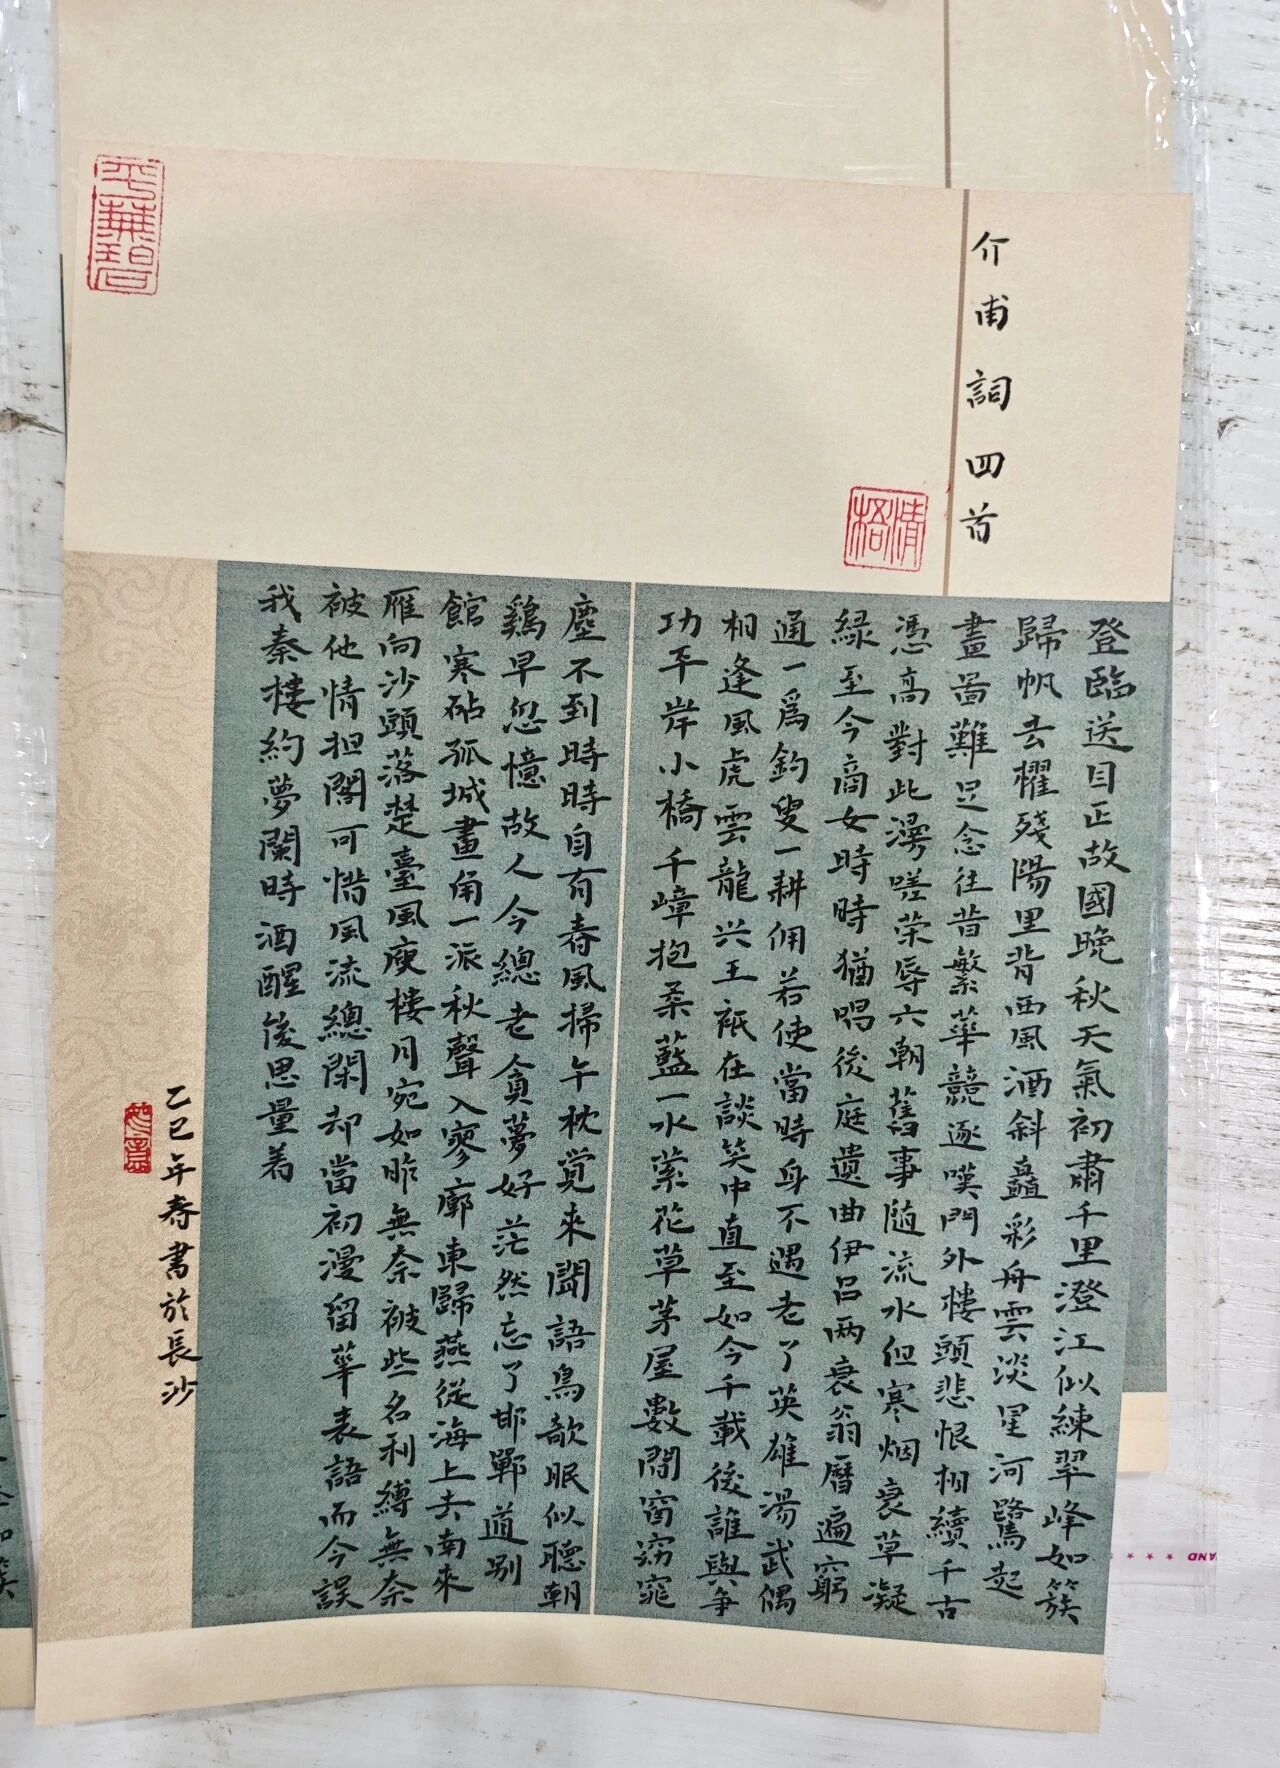 介甫詞四首
清梧
平蕪碧
登臨送目正故國晚秋天氣初肅千里澄江似練翠峰如簇
歸帆去櫂殘陽里背西風酒斜矗彩舟雲淡星河鷺起
畫圖難足念往昔繁華競逐嘆門外樓頭悲恨相續千古
憑高對此漫嗟荣辱六朝舊事隨流水但寒烟衰草凝
緑至今商女時時猶唱後庭遺曲伊吕两衰翁曆遍窮
通一爲釣叟一耕佣若使當時身不遇老了英雄湯武偶
相逢風虎雲龍兴王祇在談笑中直至如今千載後誰與争
功平岸小橋千嶂抱柔藍一水縈花草茅屋數間窗窈窕
塵不到時時自有春風掃午枕覚來聞語鳥欹眠似聴朝
鷄早忽憶故人今總老貪夢好茫然忘了邯鄲道别
館寒砧孤城畫角一派秋聲入寥廓東歸燕從海上去南來
雁向沙頭落楚臺風庾樓月宛如昨無奈被些名利縛無奈
被他情担閣可惜風流總閑却當初漫留華表語而今誤
我秦樓約夢闌時酒醒後思量着
乙巳年春書於長沙